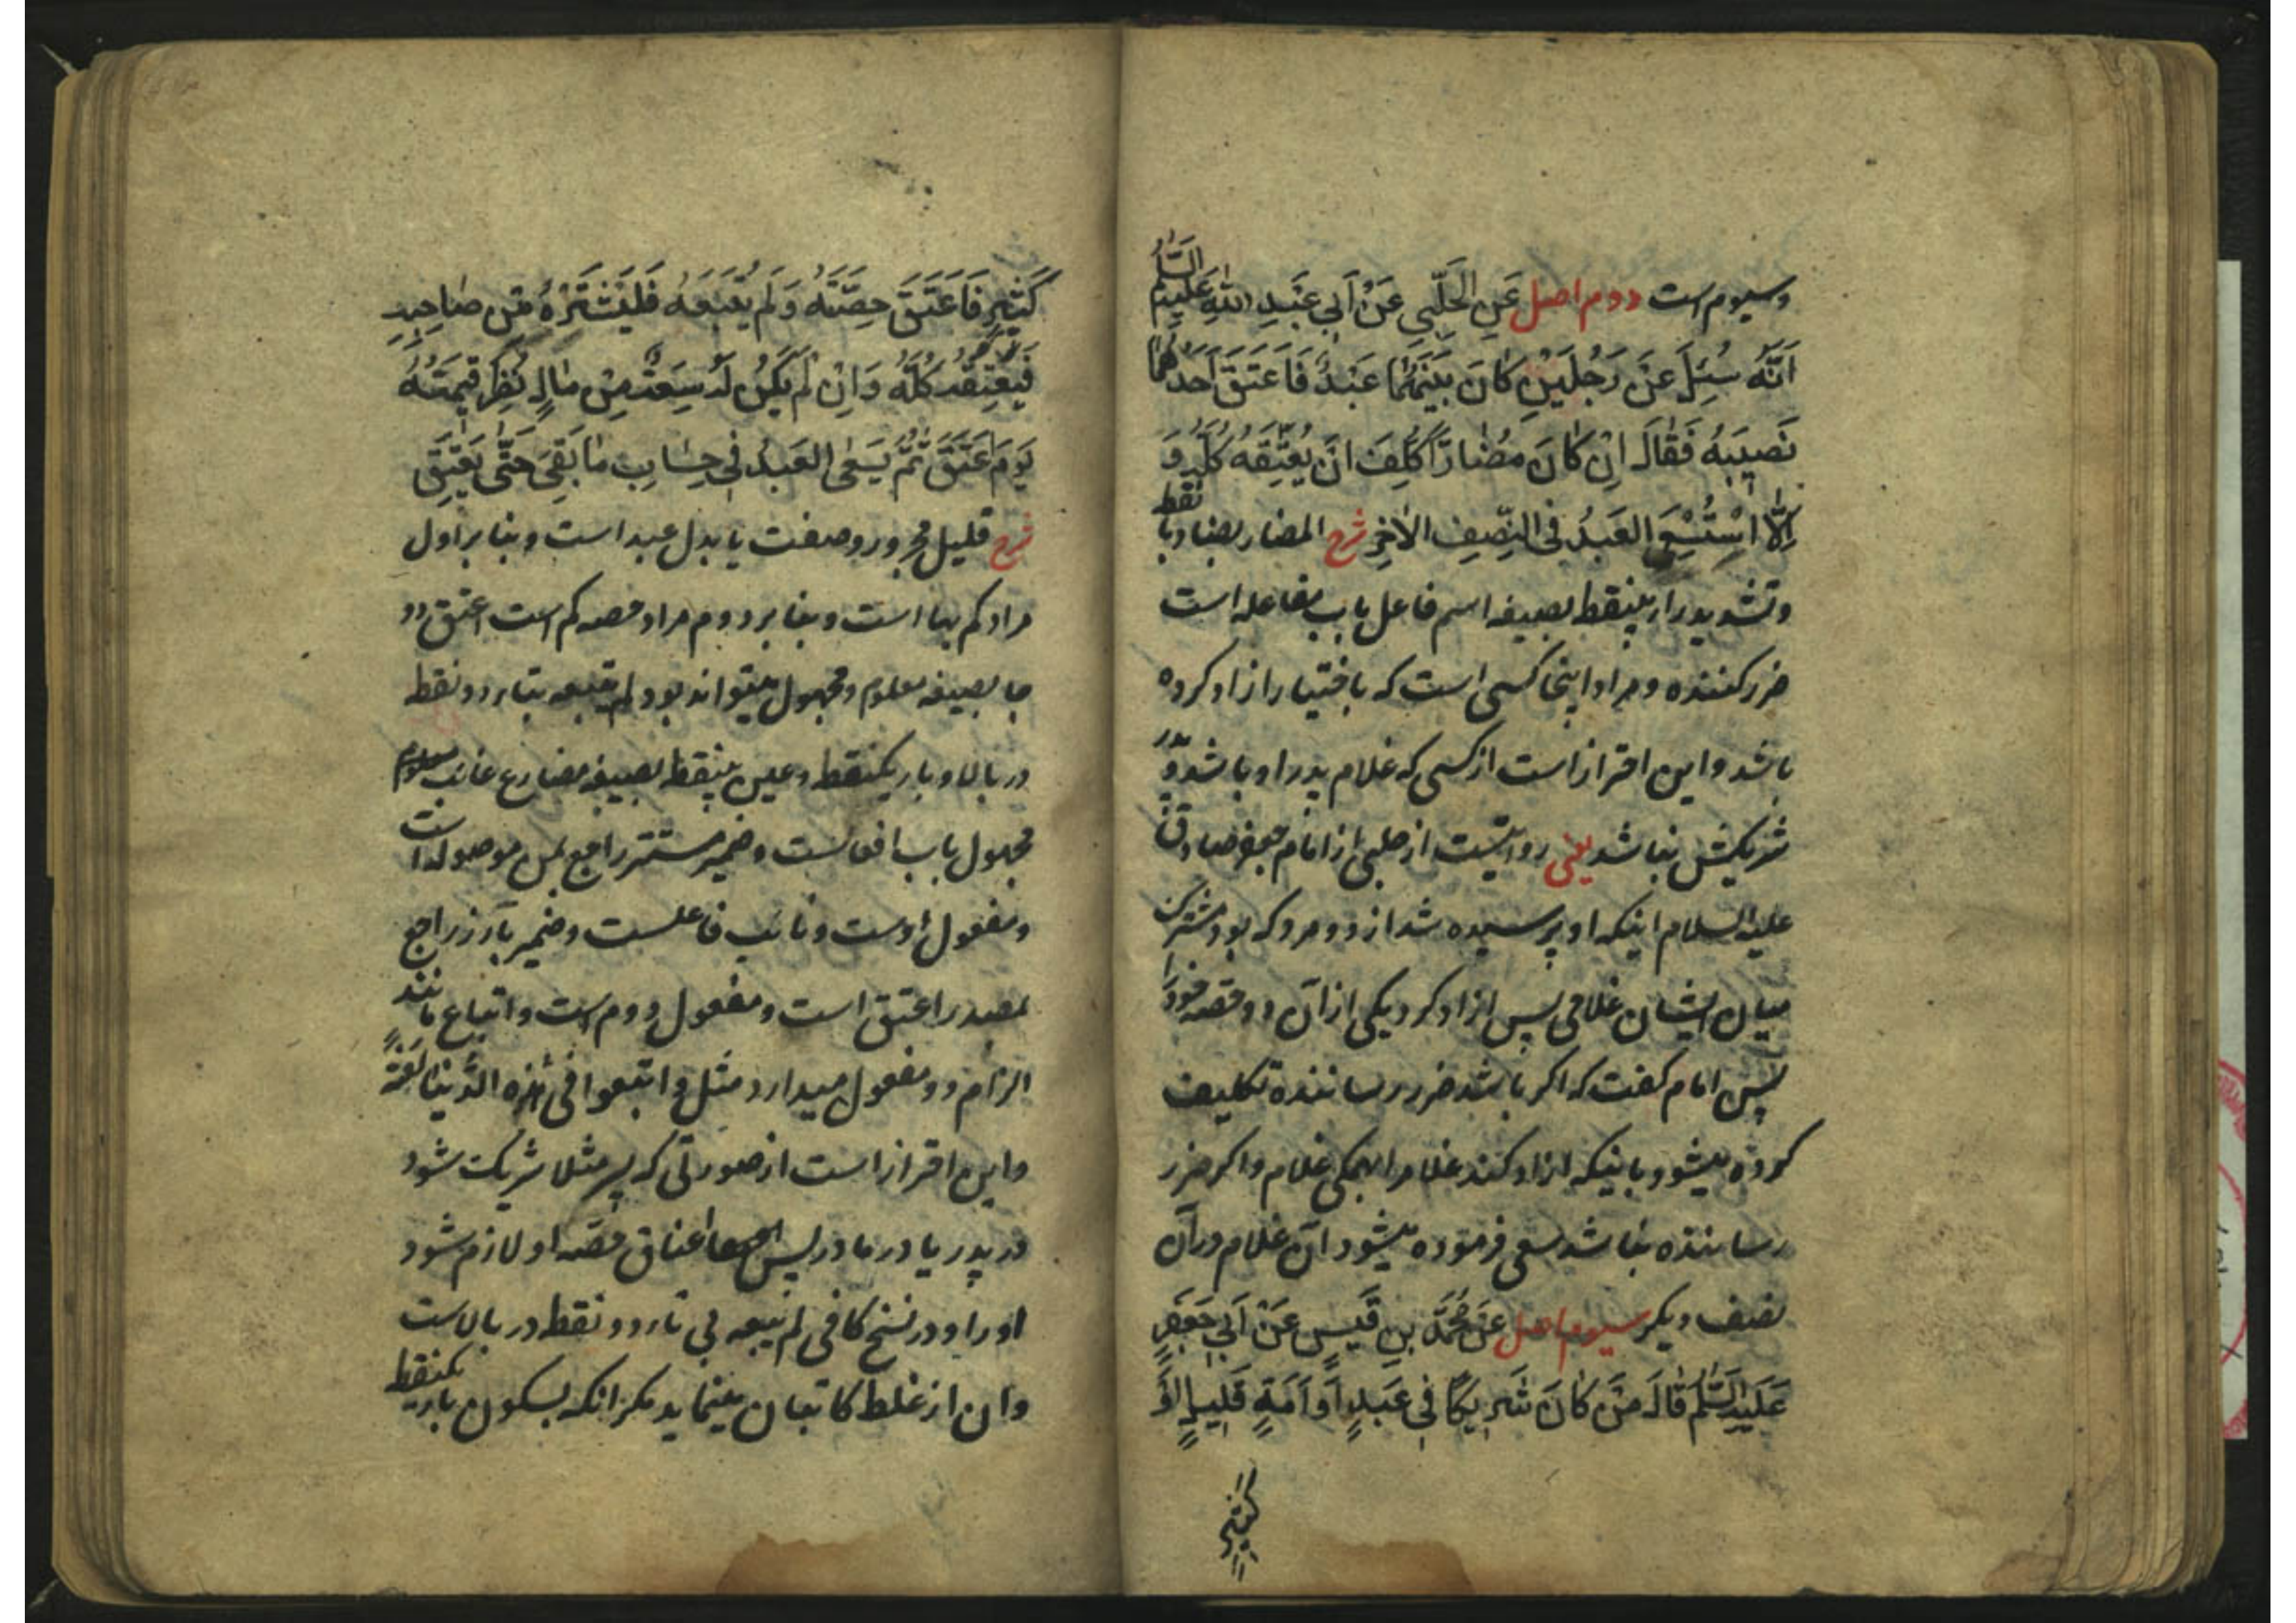 وسیوم است دوم اصل عَنِ الْحَلَبِیِّ عَنْ اَبِی عَبْدِ اللّٰهِ عَلَیْهِ السَّلَمُ
اَنَّهُ سُئِلَ عَنْ رَجُلَیْنِ کَانَ بَیْنَهُمَا عَبْدٌ فَاَعْتَقَ اَحَدُهُمَا
نَصِیْبَهُ فَقَالَ اِنْ کَانَ مُضَارًّا کُلِّفَ اَنْ یُعْتِقَهُ کُلَّهُ وَ
اِلَّا اسْتُسْعِیَ العَبْدُ فِی النِّصْفِ الاٰخَرِ شرح المضار بضاد با نقطه
وتشدید را بینقطه بصیغه اسم فاعل باب مفاعله است
ضررکننده ومراد اینجا کسی است که باختیار ازاد کرده
باشد واین احتراز است از کسی که غلام پدر او باشد و پدر
شریکش نباشد یعنی روایتست از حلبی از امام جعفر صادق
علیه السلام اینکه او پرسیده شد از دو مرد که بود مشترک
میان ایشان غلامی پس ازاد کرد یکی از آن دو حصه خود را
پس امام کفت که اکر باشد ضرر رساننده تکلیف
کرده میشود باینکه ازاد کند غلام را همکی غلام واکر ضرر
رساننده نباشد سعی فرموده میشود آن غلام در آن
نصف دیکر سیوم اصل عَنْ مُحَمَّدِ بْنِ قَیْسٍ عَنْ اَبِی جَعْفَرٍ
عَلَیْهِ السَّلَمُ قَالَ مَنْ کَانَ شَرِیکًا فِی عَبْدٍ اَوْ اَمَةٍ قَلِیلٍ اَوْ
کَثِیْرٍ
کَثِیْرٍ فَاَعْتَقَ حِصَّتَهُ وَلَمْ یُتْبِعْهُ فَلْیَشْتَرِهِ مِنْ صَاحِبِهِ
فَیُعْتِقُهُ کُلَّهُ وَاِنْ لَمْ یَکُنْ لَهُ سِعَةٌ مِنْ مَالٍ نُظِرَ قِیمَتُهُ
یَوْمَ عَتَقَ ثُمَّ یَسْعَی العَبْدُ فِی حِسَابِ مَا بَقِیَ حَتَّی یُعْتَقَ
شرح قلیل مجرور وصفت یا بدل عبد است وبنا بر اول
مراد کم بها است وبنا بر دوم مراد حصه کم است اعتق دو
جا بصیغه معلوم ومجهول میتواند بود لم یتبعه بتاء دو نقطه
در بالا وباء یکنقطه وعین بینقطه بصیغه مضارع غایب معلوم
مجهول باب افعالست وضمیر مستتر راجع بمن موصوله است
ومفعول اوست ونائب فاعلست وضمیر بارز راجع
بمصدر اعتق است ومفعول دوم است واتباع مانند
الزام دو مفعول میدارد مثل واتبعوا فی هٰذه الدُّنیا لَعْنَةً
واین احتراز است از صورتی که پسر مثلا شریک شود
در پدر یا در مادر پس اعتاق حصّه او لازم شود
او را ودر نسخ کافی لم یبعه بی تاء دو نقطه در بالاست
وان از غلط کاتبان مینماید مکر انکه بسکون باء یکنقطه